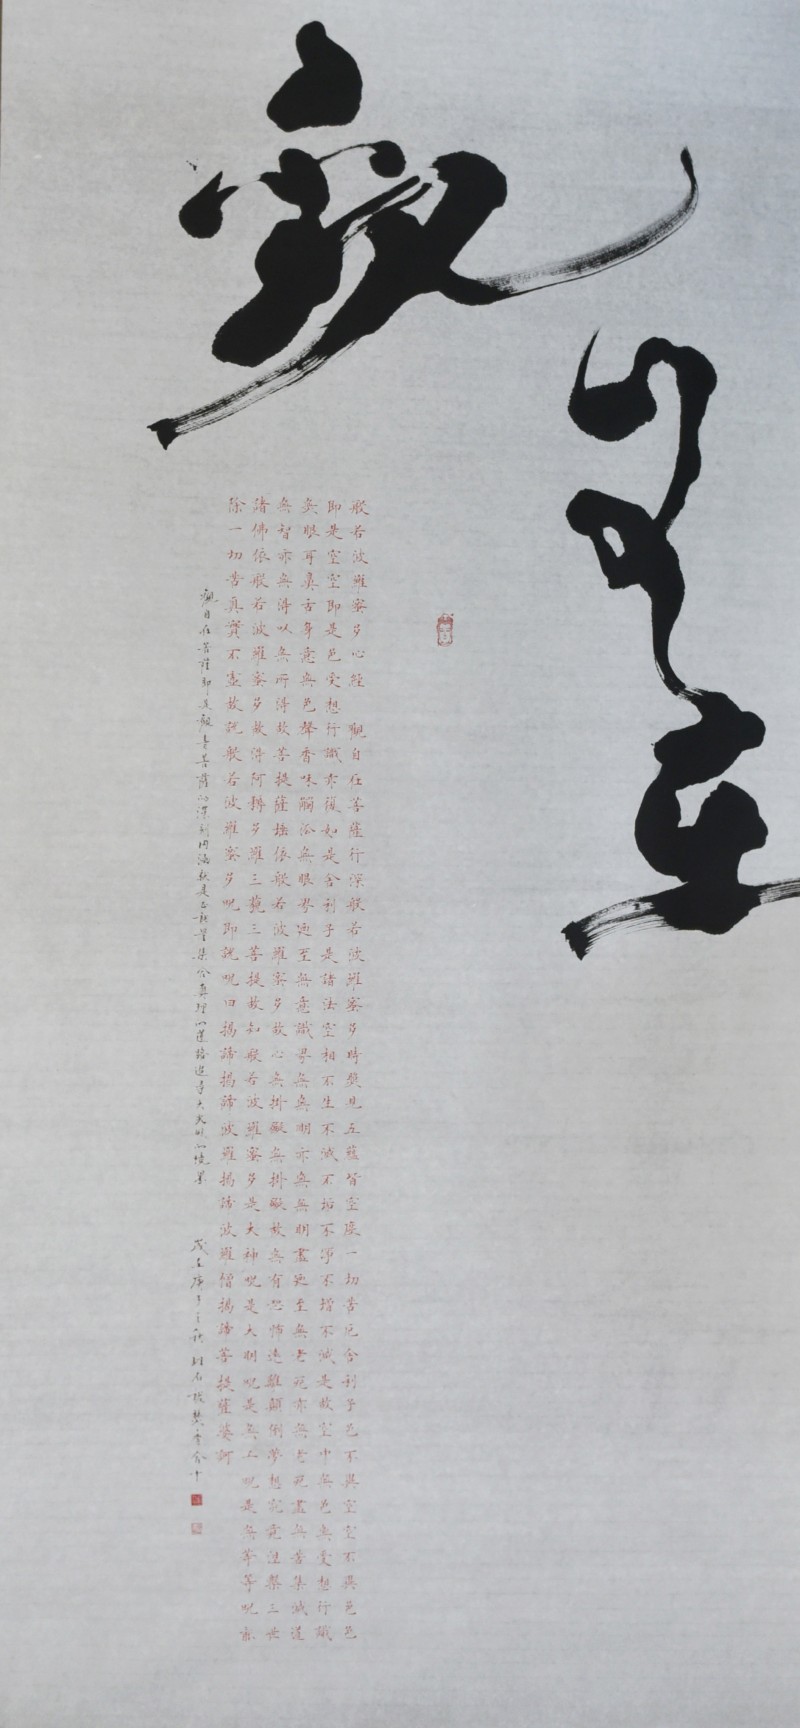 觀自在
般若波羅蜜多心經 觀自在菩薩行深般若波羅蜜多時照見五蘊皆空度一切苦厄舍利子色不異空空不異色色
即是空空即是色受想行識亦復如是舍利子是諸法空相不生不滅不垢不淨不增不減是故空中無色無受想行識
無眼耳鼻舌身意無色聲香味觸法無眼界迺至無意識界無無明亦無無明盡迺至無老死亦無老死盡無苦集滅道
無智亦無得以無所得故菩提薩埵依般若波羅蜜多故心無掛礙無掛礙故無有恐怖遠離顛倒夢想究竟涅槃三世
諸佛依般若波羅蜜多故得阿耨多羅三藐三菩提故知般若波羅蜜多是大神呪是大明呪是無上呪是無等等呪能
除一切苦真實不虛故說般若波羅蜜多呪即說呪曰揭諦揭諦波羅揭諦波羅僧揭諦菩提薩婆訶
觀自在菩薩即是觀音菩薩